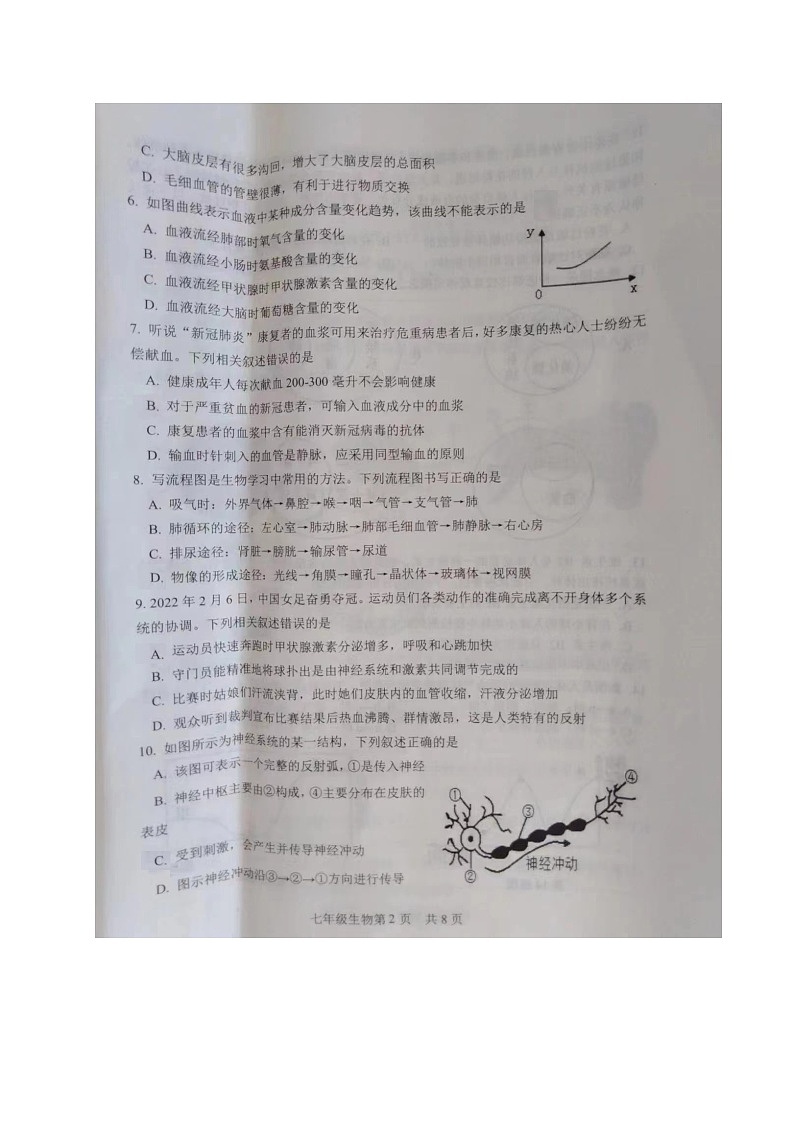 C. 大脑皮层有很多沟回，增大了大脑皮层的总面积
D. 毛细血管的管壁很薄，有利于进行物质交换
6. 如图曲线表示血液中某种成分含量变化趋势，该曲线不能表示的是
A. 血液流经肺部时氧气含量的变化
B. 血液流经小肠时氨基酸含量的变化
C. 血液流经甲状腺时甲状腺激素含量的变化
D. 血液流经大脑时葡萄糖含量的变化
y
0
x
7. 听说“新冠肺炎”康复者的血浆可用来治疗危重病患者后，好多康复的热心人士纷纷无
偿献血。下列相关叙述错误的是
A. 健康成年人每次献血 200-300 毫升不会影响健康
B. 对于严重贫血的新冠患者，可输入血液成分中的血浆
C. 康复患者的血浆中含有能消灭新冠病毒的抗体
D. 输血时针刺入的血管是静脉，应采用同型输血的原则
8. 写流程图是生物学习中常用的方法。下列流程图书写正确的是
A. 吸气时：外界气体→鼻腔→喉→咽→气管→支气管→肺
B. 肺循环的途径：左心室→肺动脉→肺部毛细血管→肺静脉→右心房
C. 排尿途径：肾脏→膀胱→输尿管→尿道
D. 物像的形成途径：光线→角膜→瞳孔→晶状体→玻璃体→视网膜
9. 2022 年 2 月 6 日，中国女足奋勇夺冠。运动员们各类动作的准确完成离不开身体多个系
统的协调。下列相关叙述错误的是
A. 运动员快速奔跑时甲状腺激素分泌增多，呼吸和心跳加快
B. 守门员能精准地将球扑出是由神经系统和激素共同调节完成的
C. 比赛时姑娘们汗流浃背，此时她们皮肤内的血管收缩，汗液分泌增加
D. 观众听到裁判宣布比赛结果后热血沸腾、群情激昂，这是人类特有的反射
10. 如图所示为神经系统的某一结构，下列叙述正确的是
A. 该图可表示一个完整的反射弧，①是传入神经
B. 神经中枢主要由②构成，④主要分布在皮肤的
表皮
C. 受到刺激，会产生并传导神经冲动
D. 图示神经冲动沿③→②→①方向进行传导
①
②
③
④
神经冲动
七年级生物第 2 页 共 8 页